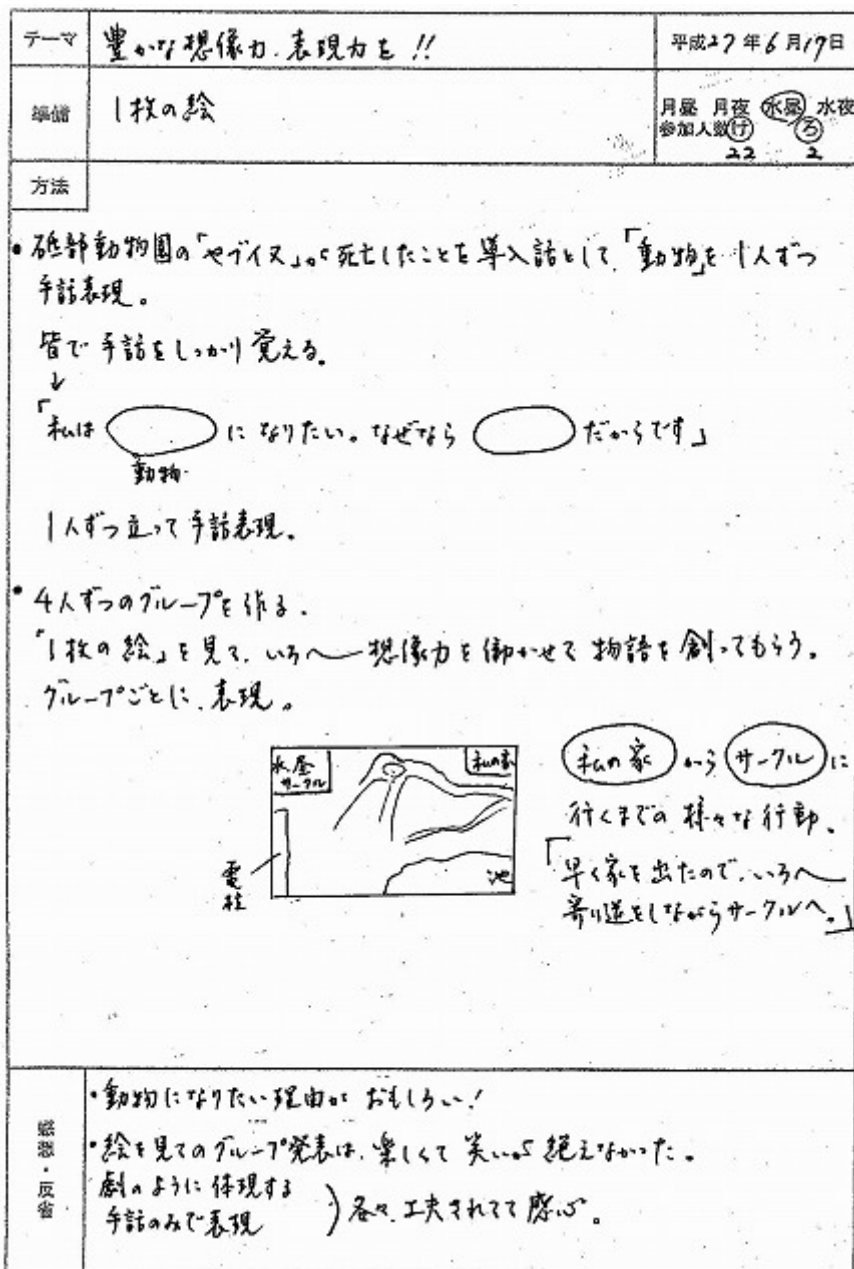 テーマ 豊かな想像力、表現力を!! 平成27年6月17日
準備 1枚の絵 月昼 月夜 水昼 水夜
参加人数 け ろ
22 2
方法
・砥部動物園の「ヤブイヌ」が死亡したことを導入話として、「動物」を1人ずつ
手話表現。
皆で手話をしっかり覚える。
↓
「私は になりたい。なぜなら だからです」
動物
1人ずつ立って手話表現。
・4人ずつのグループを作る。
「1枚の絵」を見て、いろへ 想像力を働かせて物語を創ってもらう。
グループごとに、表現。
水昼
サークル
私の家
電柱
池
私の家 から サークル に
行くまでの様々な行動。
「早く家を出たので、いろへ
寄り道をしながらサークルへ。」
感想・反省
・動物になりたい理由がおもしろい!
・絵を見てのグループ発表は、楽しくて笑いが絶えなかった。
劇のように体現する
手話のみで表現
)各々、工夫されてて感心。